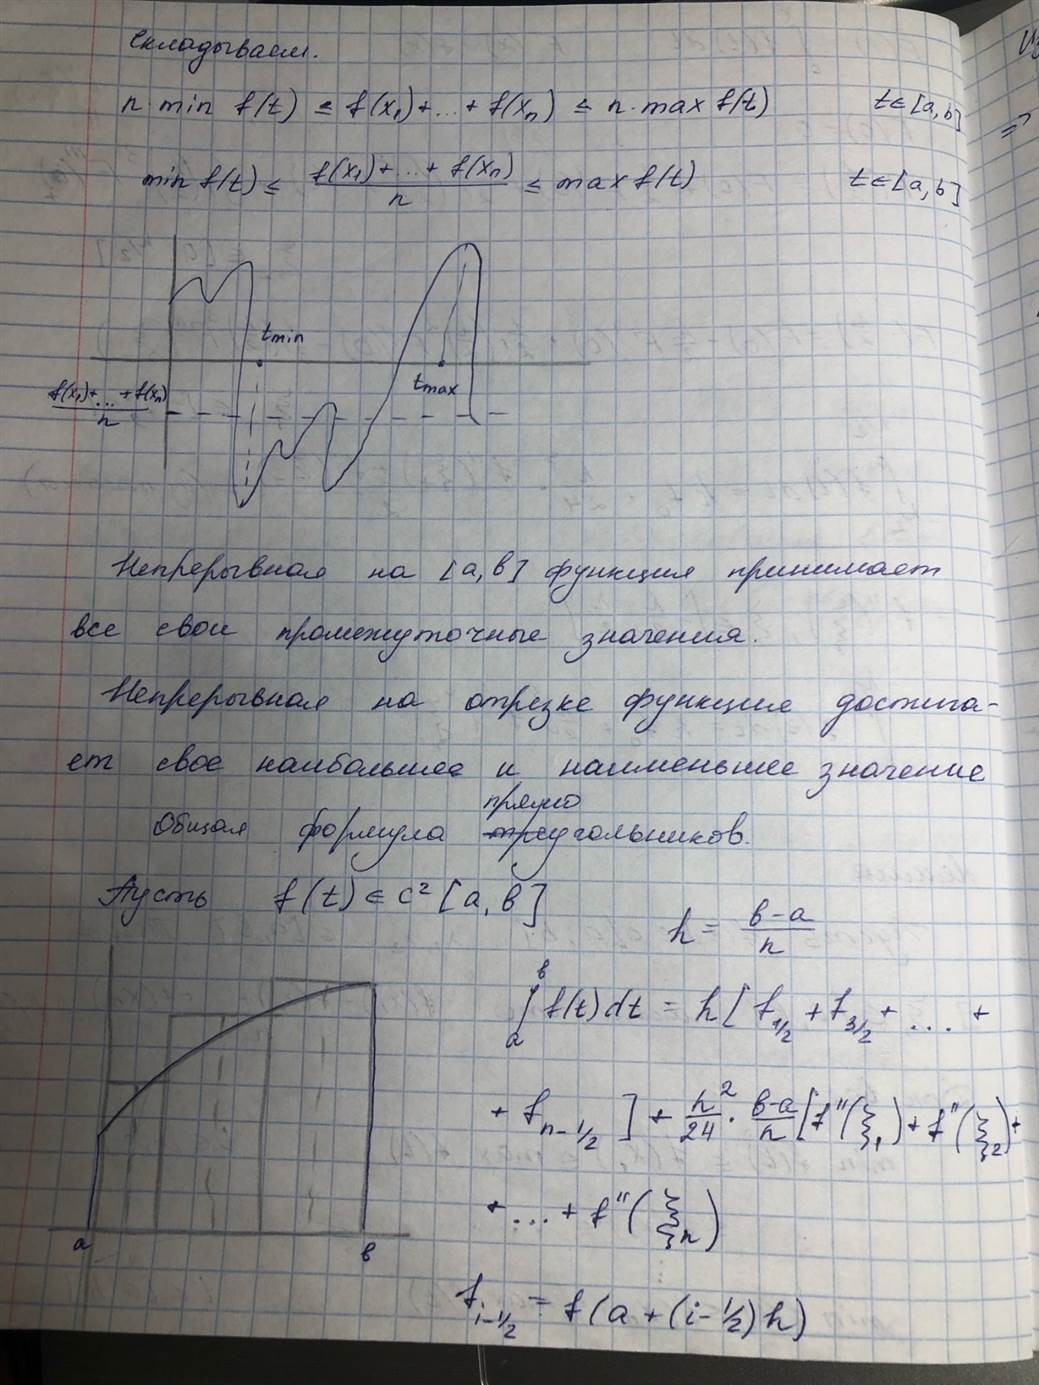 Складываем.
n · min f(t) ≤ f(x₁)+...+ f(xₙ) ≤ n · max f(t) t∈[a,b]
min f(t) ≤ (f(x₁)+...+ f(xₙ))/n ≤ max f(t) t∈[a,b]
tmin
tmax
(f(x₁)+...+f(xₙ))/n
Непрерывная на [a,b] функция принимает
все свои промежуточные значения.
Непрерывная на отрезке функция достига-
ет свое наибольшее и наименьшее значение
Общая формула прямоугольников.
Пусть f(t) ∈ C² [a,b]
h = (b-a)/n
∫ₐᵇ f(t)dt = h[f₁/₂ + f₃/₂ + ... +
+ fₙ₋₁/₂ ] + h²/24 · (b-a)/n [f''(ξ₁)+f''(ξ₂)+
+...+ f''(ξₙ)
a
b
fᵢ₋₁/₂ = f(a+(i-1/2)h)